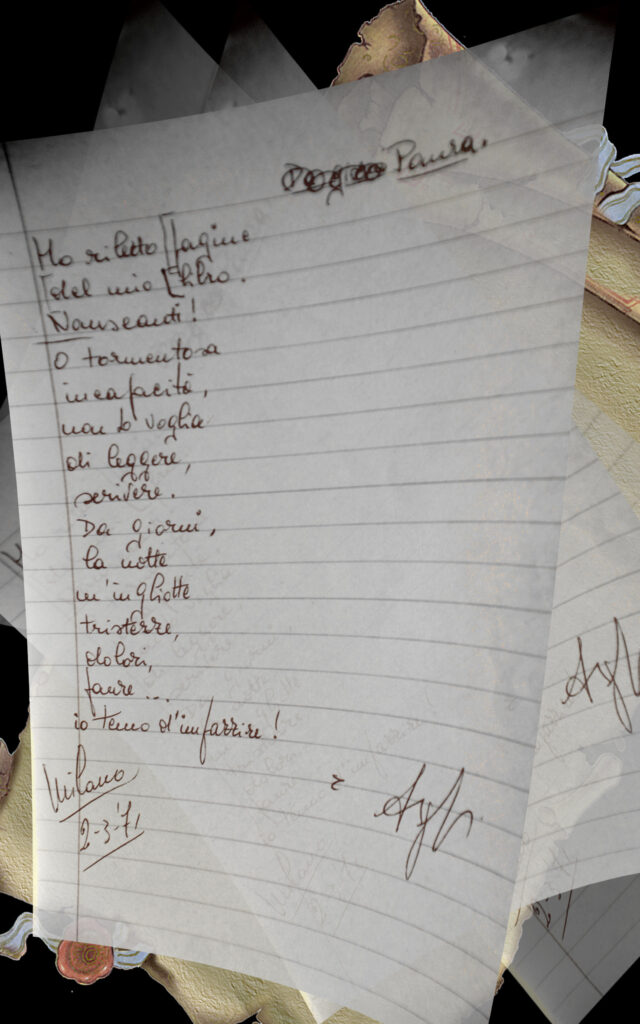 Paura.
Ho riletto [pagine
[del mio [libro.
Nauseandi!
O tormentosa
incapacità,
non ho voglia
di leggere,
scrivere.
Da giorni,
la notte
m'inghiotte
tristezze,
dolori,
paure...
io temo d'impazzire!
Milano
2-3-'71